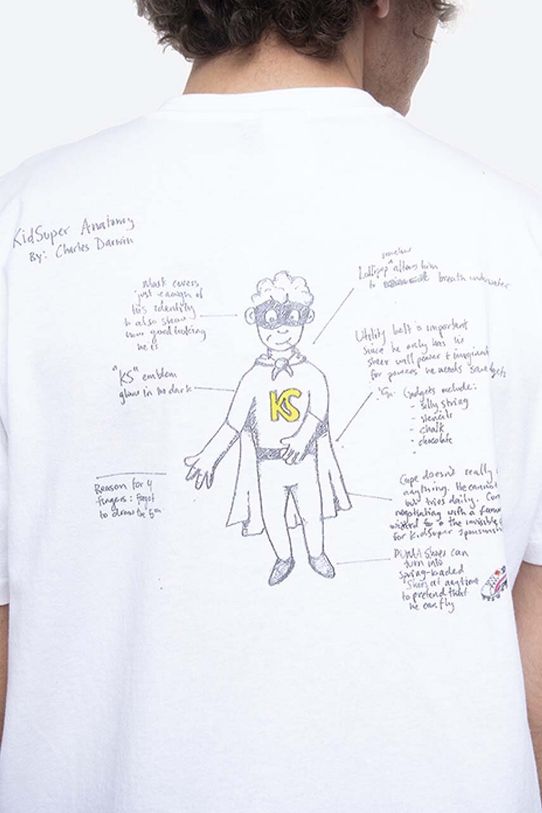 KidSuper Anatomy
By: Charles Darwin
Mask covers
just enough of
his identity
to also show
how good looking
he is
"KS" emblem
glow in the dark
Reason for 4
fingers: forgot
to draw the 5th
KS
somehow
Lollipop ^ allows him
to breath underwater
Utility belt is important
since he only has his
sheer will power + imaginat
for powers he needs gadgets
Gadgets include:
- silly string
- stencils
- chalk
- chocolate
-
Cape doesn't really
anything. He cannot
tries daily. Con
negotiating with a famous
wizard for the invisible
for KidSuper sponsorship
PUMA shoes can
turn into
spring-loaded
shoes at anytime
to pretend that
he can fly